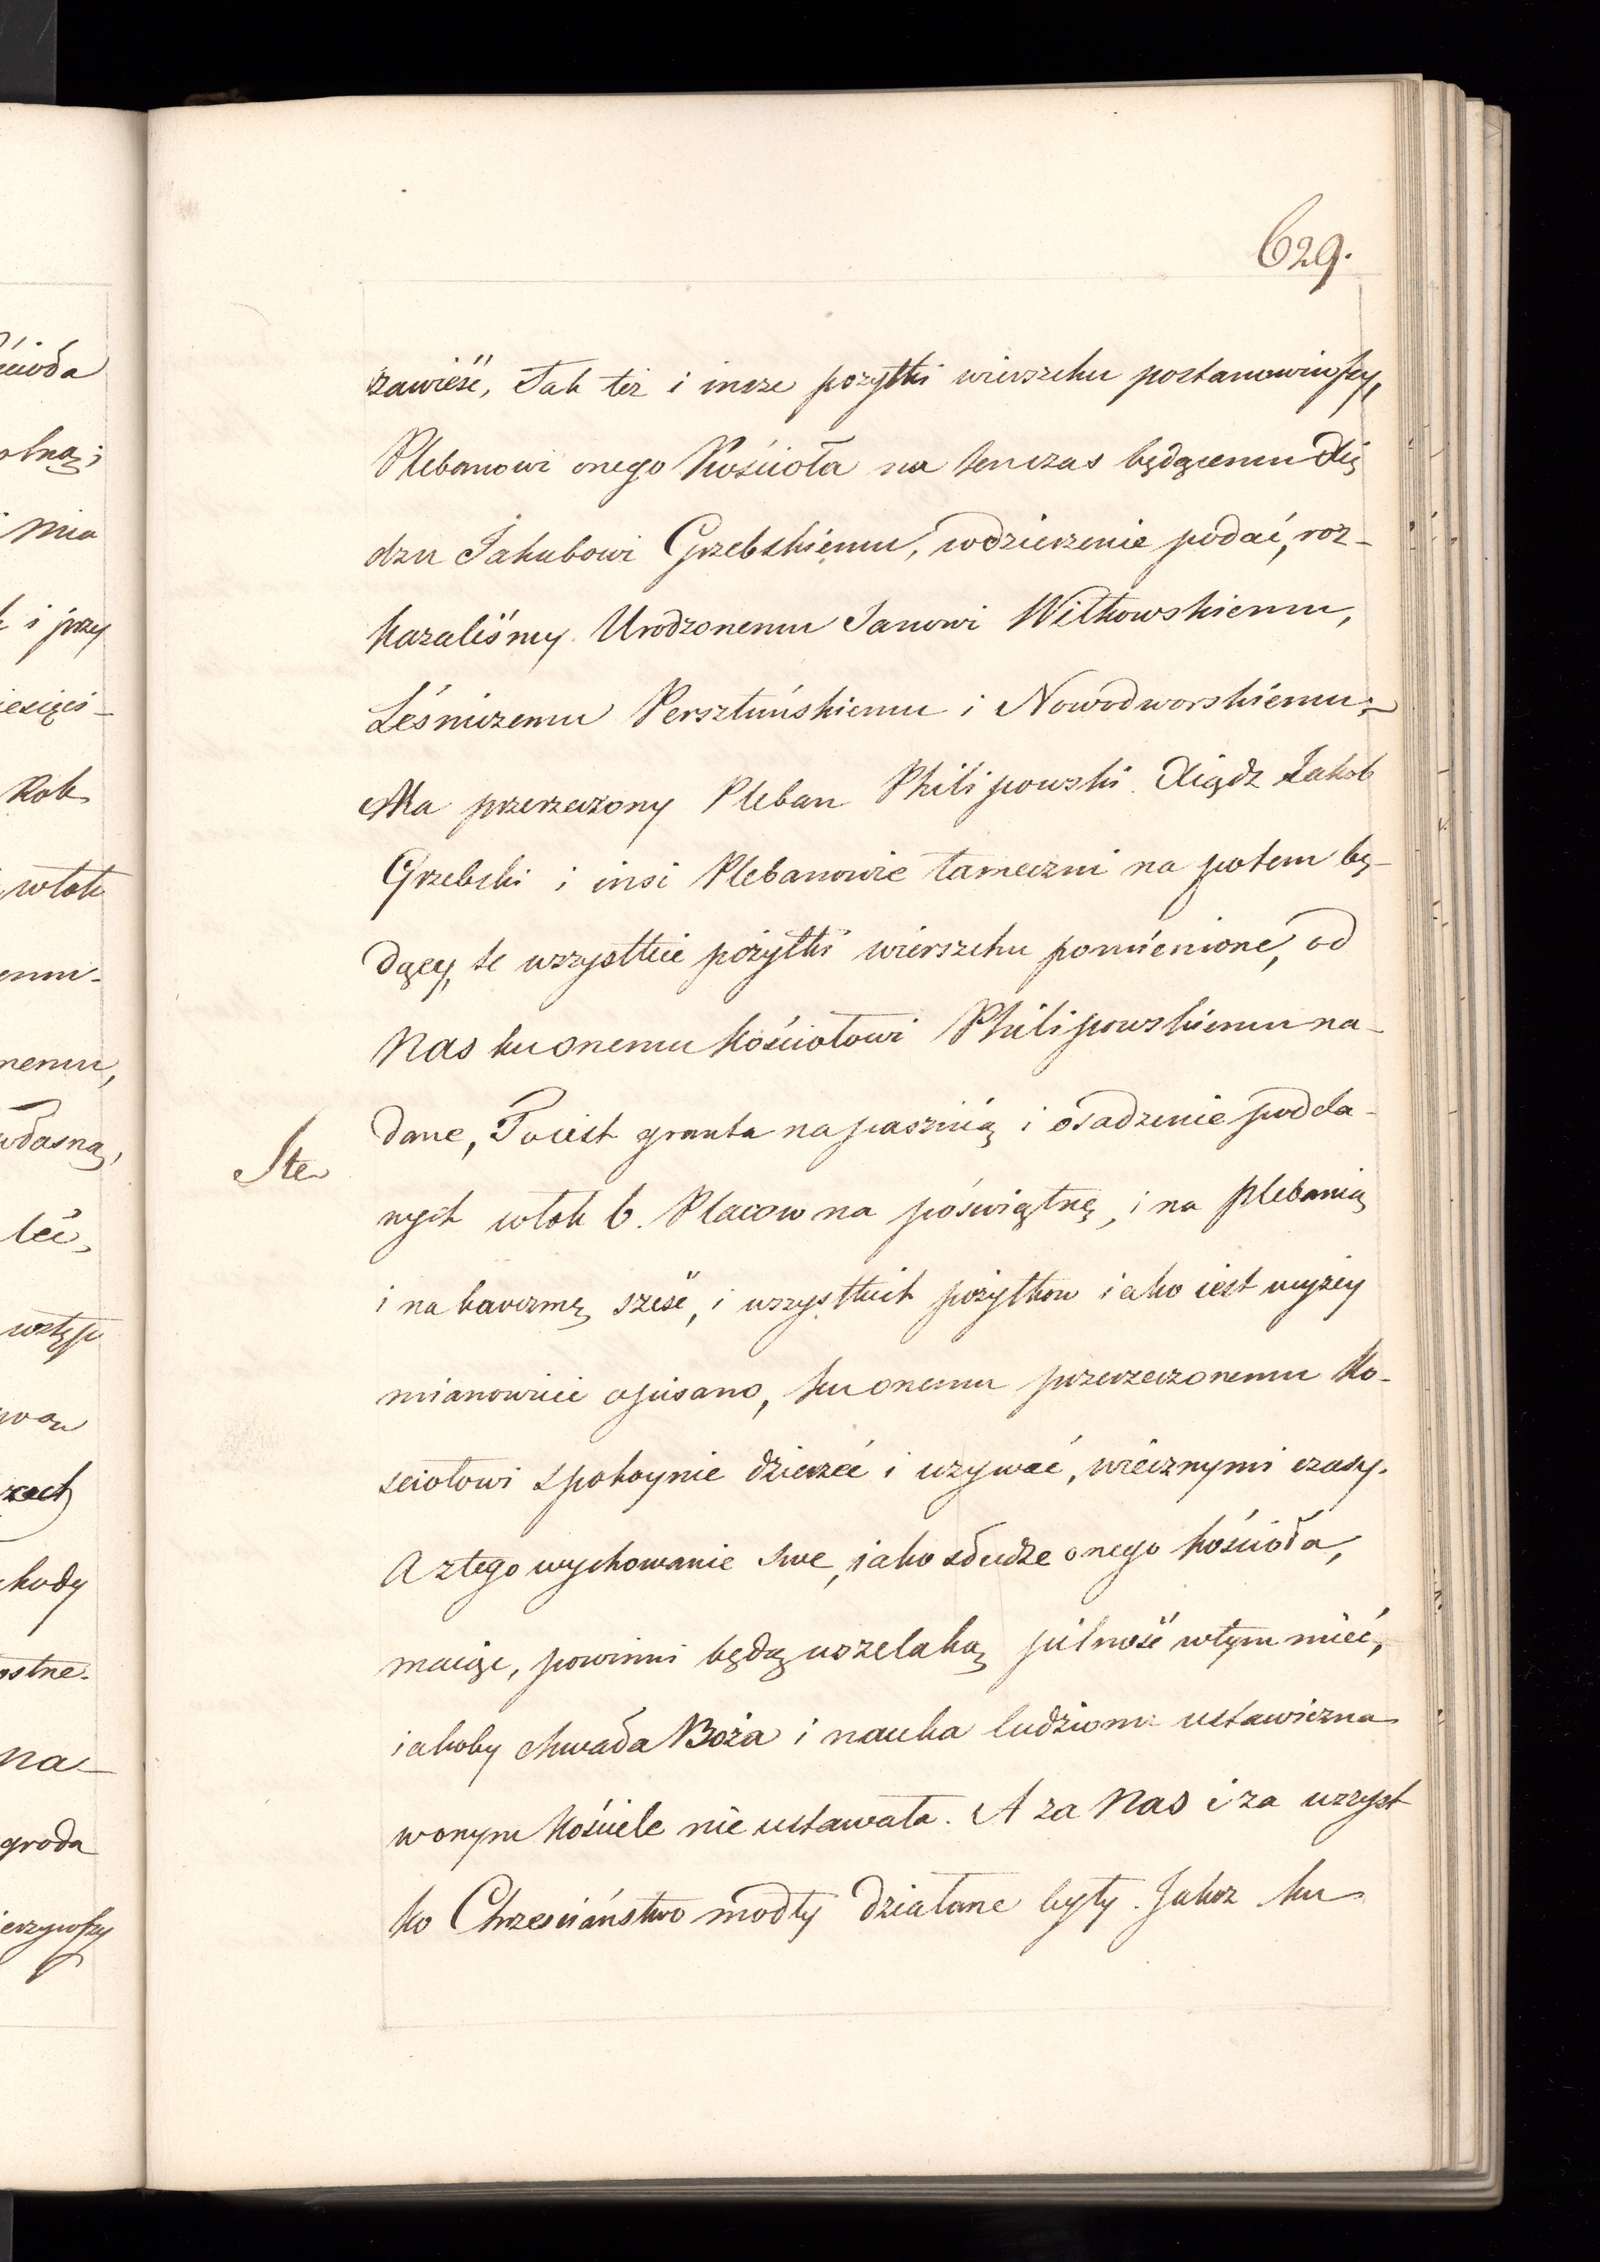 629.
zawieść, Tak też i insze pożytki wierszchu postanowiwszy,
Plebanowi onego Kościoła na tenczas będącemu Xię
dzu Jakubowi Grzebskiemu, wdzierżenie podać, roz-
kazaliśmy Urodzonemu Janowi Wilkowskiemu,
Leśniczemu Persztuńskiemu i Nowodworskiemu;
Ma przerzeczony Pleban Philipowski Xiądz Jakob
Grzebski i insi Plebanowie tameczni na potem bę-
dący, te wszystkie pożytki wierszchu pomienione, od
Nas ku onemu kościołowi Philipowskiemu na-
dane, To iest grunta na pasznią i osadzenie podda-
Ste
nych włok 6. Placow na poświętnę, i na Plebanią
i na karczmę sześć, i wszystkich pożytkow iako iest wyżey
mianowicie opisano, ku onemu przerzeczonemu Ko-
sciołowi spokoynie dzierżeć i uzywać, wiecznymi czasy.
A z tego wychowanie swe, jako słudze onego kościoła,
maiąc, powinni będą wszelaką pilność wtym mieć,
iakoby chwała Boża i nauka ludziom ustawiczna
wonym kościele nie ustawała. A za Nas i za wszyst
ko Chrześciaństwo modły działane były. Jakoz ku
ościoła
olną;
i mia
k i przy
iesięcś-
Rok
włok
emu-
nemu,
własną,
leć,
wstęp
rzech
kody
ostne-
na-
groda
ierzywszy